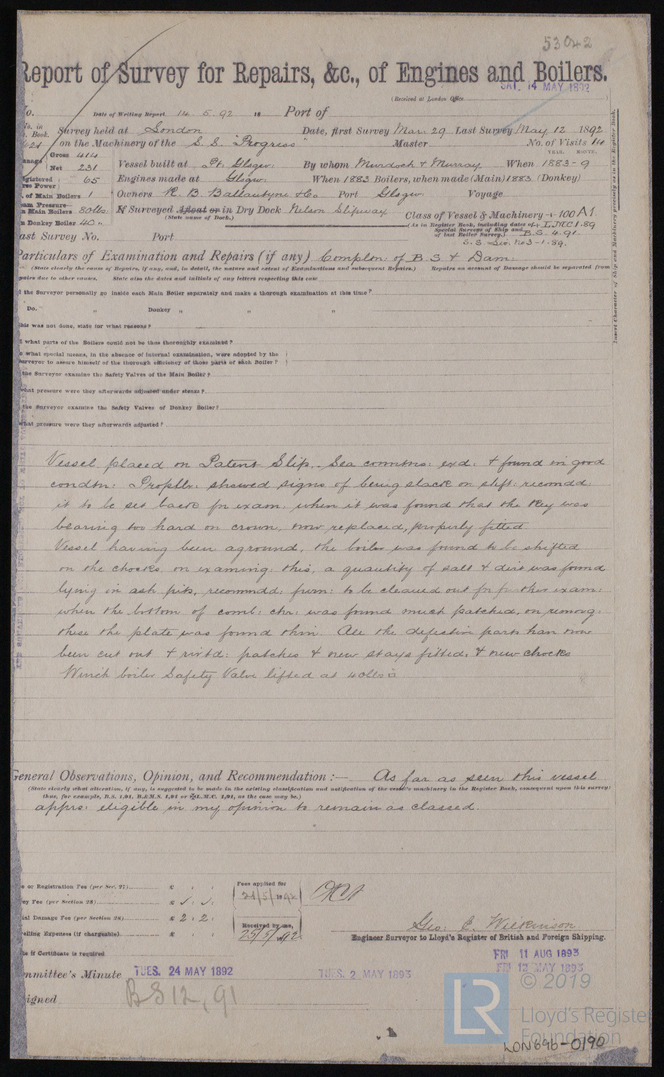 53042
Report of Survey for Repairs, &c., of Engines and Boilers.
(Received at London Office
SAT. 14 MAY 1892
No. Date of Writing Report 14. 5. 92 18 Port of
No. in Book. Survey held at London Date, first Survey Mar. 29 Last Survey May 12 1892
on the Machinery of the S.S. "Progress" Master No. of Visits 14
Gross 414
Net 231 Vessel built at Pt. Glasgow By whom Murdoch & Murray When 1883-9
YEAR. MONTH.
Registered Horse Power 65 Engines made at Glasgow When 1883 Boilers, when made (Main) 1883 (Donkey)
No. of Main Boilers 1 Owners R. B. Ballantyne & Co Port Glasgow Voyage
Steam Pressure in Main Boilers 80 lbs If Surveyed Afloat or in Dry Dock Nelson Slipway Class of Vessel & Machinery 100 A1
in Donkey Boilers 40 " (State name of Dock.) (As in Register Book, including dates of Special Surveys of Ship and of last Boiler Survey.) LMC 1.89
B.S. 4.91
S.S. No3-1.89.
Last Survey No. Port
Particulars of Examination and Repairs (if any) Complen of B S & Dam:
(State clearly the cause of Repairs, if any, and, in detail, the nature and extent of Examinations and subsequent Repairs.) Repairs on account of Damage should be separated from
repairs due to other causes. State also the dates and initials of any letters respecting this case
Did the Surveyor personally go inside each Main Boiler separately and make a thorough examination at this time?
Do. " Donkey " " "
If this was not done, state for what reasons?
And what parts of the Boilers could not be thus thoroughly examined?
Also what special means, in the absence of internal examination, were adopted by the
Surveyor to assure himself of the thorough efficiency of those parts of each Boiler?
Did the Surveyor examine the Safety Valves of the Main Boiler?
To what pressure were they afterwards adjusted under steam?
Did the Surveyor examine the Safety Valves of Donkey Boiler?
To what pressure were they afterwards adjusted?
Insert Character of Ship and Machinery precisely as in the Register Book.
Vessel placed on Patent Slip. Sea connctns: exd: & found in good
condtn: Propllr: showed signs of being slack on shft: recomdd:
it to be set back for exam. when it was found that the key was
bearing too hard on crown, now replaced, properly fitted
Vessel having been aground, the boiler was found to be shifted
on the chocks, on examing: this, a quantity of salt & dirt was found
lying in ash pits, recommdd: to be cleared out for further exam:
when the bottom of comb: chr: was found much patched, on removg:
these the plate was found thin. All the defective parts have now
been cut out & rivtd: patches & new stays fitted, & new chocks
Winch boiler Safety Valve lifted at 40 lbs
General Observations, Opinion, and Recommendation:— As far as seen this vessel
(State clearly what alteration, if any, is suggested to be made in the existing classification and notification of the vessel's machinery in the Register Book, consequent upon this survey;
thus, for example, B.S. 1,91, B.&M.S. 1,91 or L.M.C. 1,91, as the case may be.)
apprs: eligible in my opinion to remain as classed
or Registration Fee (per Sec. 27) £ : :
Survey Fee (per Section 28) £ : :
Special Damage Fee (per Section 28) £ 2 : 2 :
Travelling Expenses (if chargeable) £ : :
Fees applied for
Received by me,
25/5/92
Geo. E. Wilkinson
Engineer Surveyor to Lloyd's Register of British and Foreign Shipping.
if Certificate is required
Committee's Minute TUES. 24 MAY 1892
TUES. 2 MAY 1893
FRI 11 AUG 1893
FRI 12 MAY 1893
Assigned BS 12, 91
© 2019
LR
Lloyd's Register
Foundation
LON696-0190